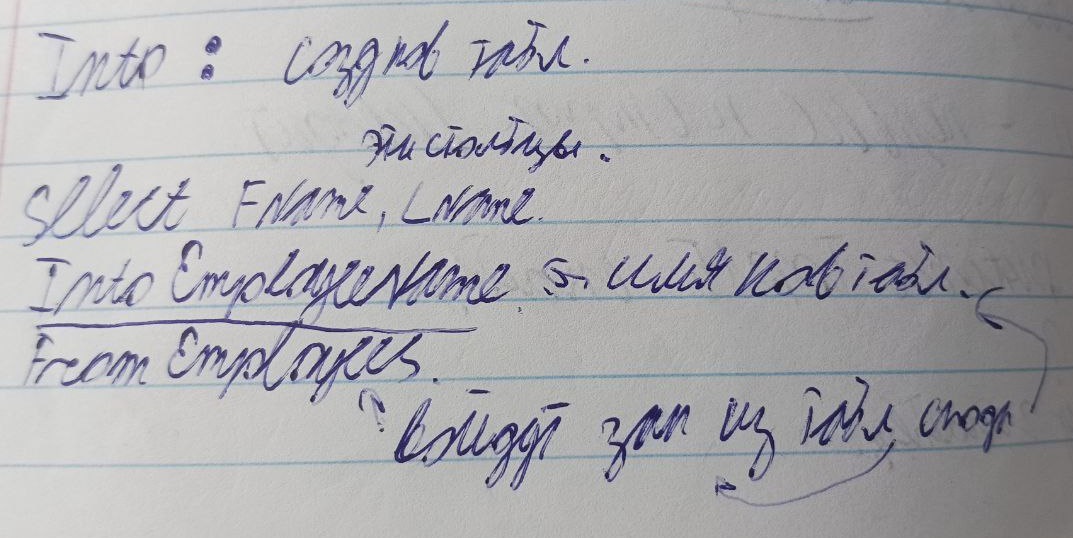 Into : созд нов табл.
эти столбцы.
Select FName, LName.
Into EmployeeName имя нов табл.
From Employees.
войдут зап из табл